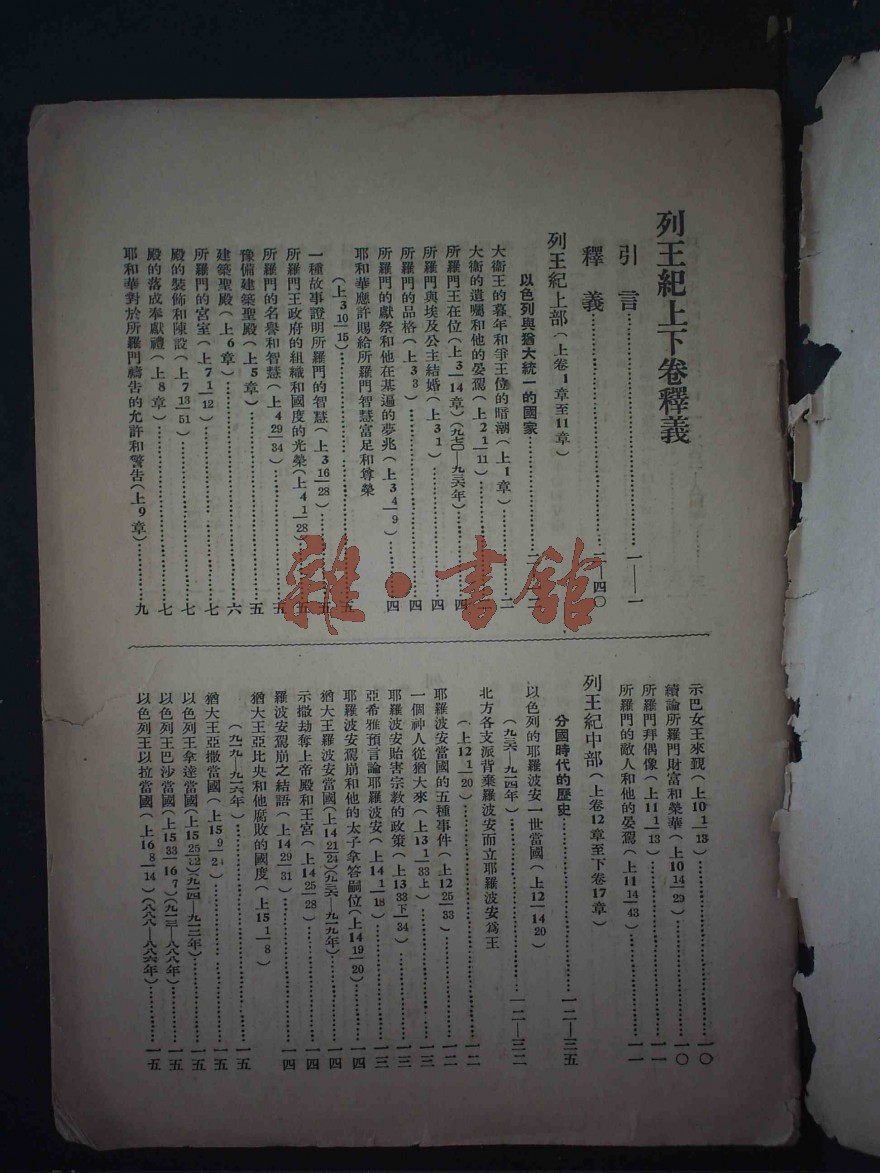 列王紀上下卷釋義
引言……一—一
釋義……二—四〇
列王紀上部（上卷1章至11章）
以色列與猶大統一的國家……
大衛王的暮年和爭王位的暗潮（上1章）……二
大衛的遺囑和他的晏駕（上2 1/11）……
所羅門王在位（上3—14章）（九七〇—九三六年）……四
所羅門與埃及公主結婚（上3 1）……四
所羅門的品格（上3 3）……四
所羅門的獻祭和他在基遍的夢兆（上3 4/9）……四
耶和華應許賜給所羅門智慧富足和尊榮
（上3 10/15）……五
一種故事證明所羅門的智慧（上3 16/28）……五
所羅門王政府的組織和國度的光榮（上4 1/28）……五
所羅門的名譽和智慧（上4 29/34）……五
豫備建築聖殿（上5章）……五
建築聖殿（上6章）……六
所羅門的宮室（上7 1/12）……七
殿的裝飾和陳設（上7 13/51）……七
殿的落成奉獻禮（上8章）……七
耶和華對於所羅門禱告的允許和警告（上9章）……九
示巴女王來覲（上10 1/13）……一〇
續論所羅門財富和榮華（上10 14/29）……一〇
所羅門拜偶像（上11 1/13）……一一
所羅門的敵人和他的晏駕（上11 14/43）……一一
列王紀中部（上卷12章至下卷17章）
分國時代的歷史……一二—三五
以色列的耶羅波安一世當國（上12/14 20）
（九三六—九一四年）……一二—三二
北方各支派背棄羅波安而立耶羅波安爲王
（上12 1/20）……一二
耶羅波安當國的五種事件（上12 25/33）……一二
一個神人從猶大來（上13 1/33上）……一三
耶羅波安貽害宗教的政策（上13 33下/34）……一三
亞希雅預言論耶羅波安（上14 1/18）……一三
耶羅波安駕崩和他的太子拿答嗣位（上14 19/20）……一四
猶大王羅波安當國（上14 21/24）（九三六—九一九年）……一四
示撒劫奪上帝殿和王宮（上14 25/28）……一四
羅波安駕崩之結語（上14 29/31）……一四
猶大王亞比央和他腐敗的國度（上15 1/8）
（九一九—九一六年）……一五
猶大王亞撒當國（上15 9/2）……一五
以色列王拿達當國（上15 25/32）（九一四—九一三年）……一五
以色列王巴沙當國（上15 33/16 7）（九一三—八八八年）……一五
以色列王以拉當國（上16 8/14）（八八八—八八六年）……一五
雜·書館